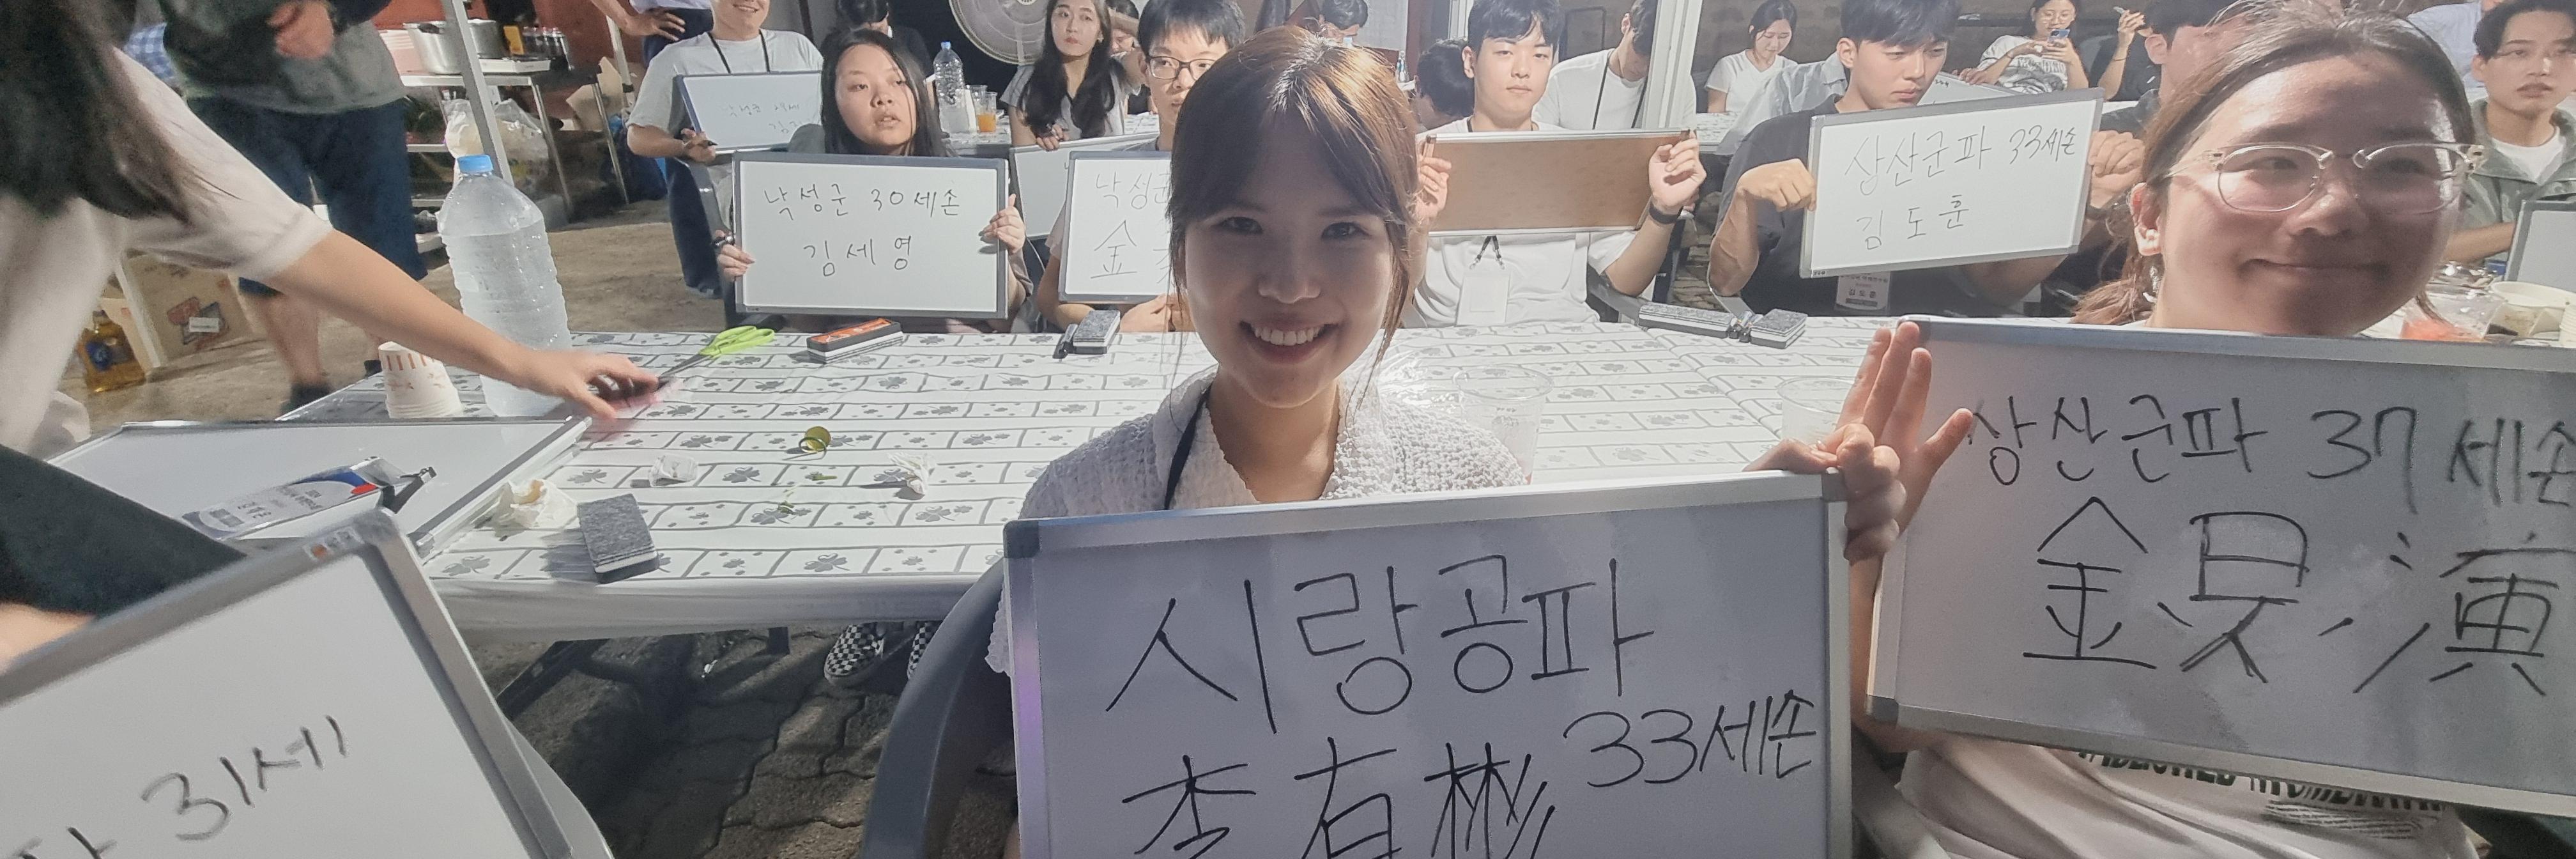 낙성군 30세손
김세영
낙성군
金
상산군파 33세손
김도훈
시랑공파
李有彬 33세손
상산군파 37세손
金旲演
31세